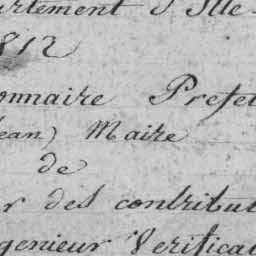 artement d'Ille
1812
onnaire Prefet
Jean) Maire
de
r des contribut
ngenieur Verificat